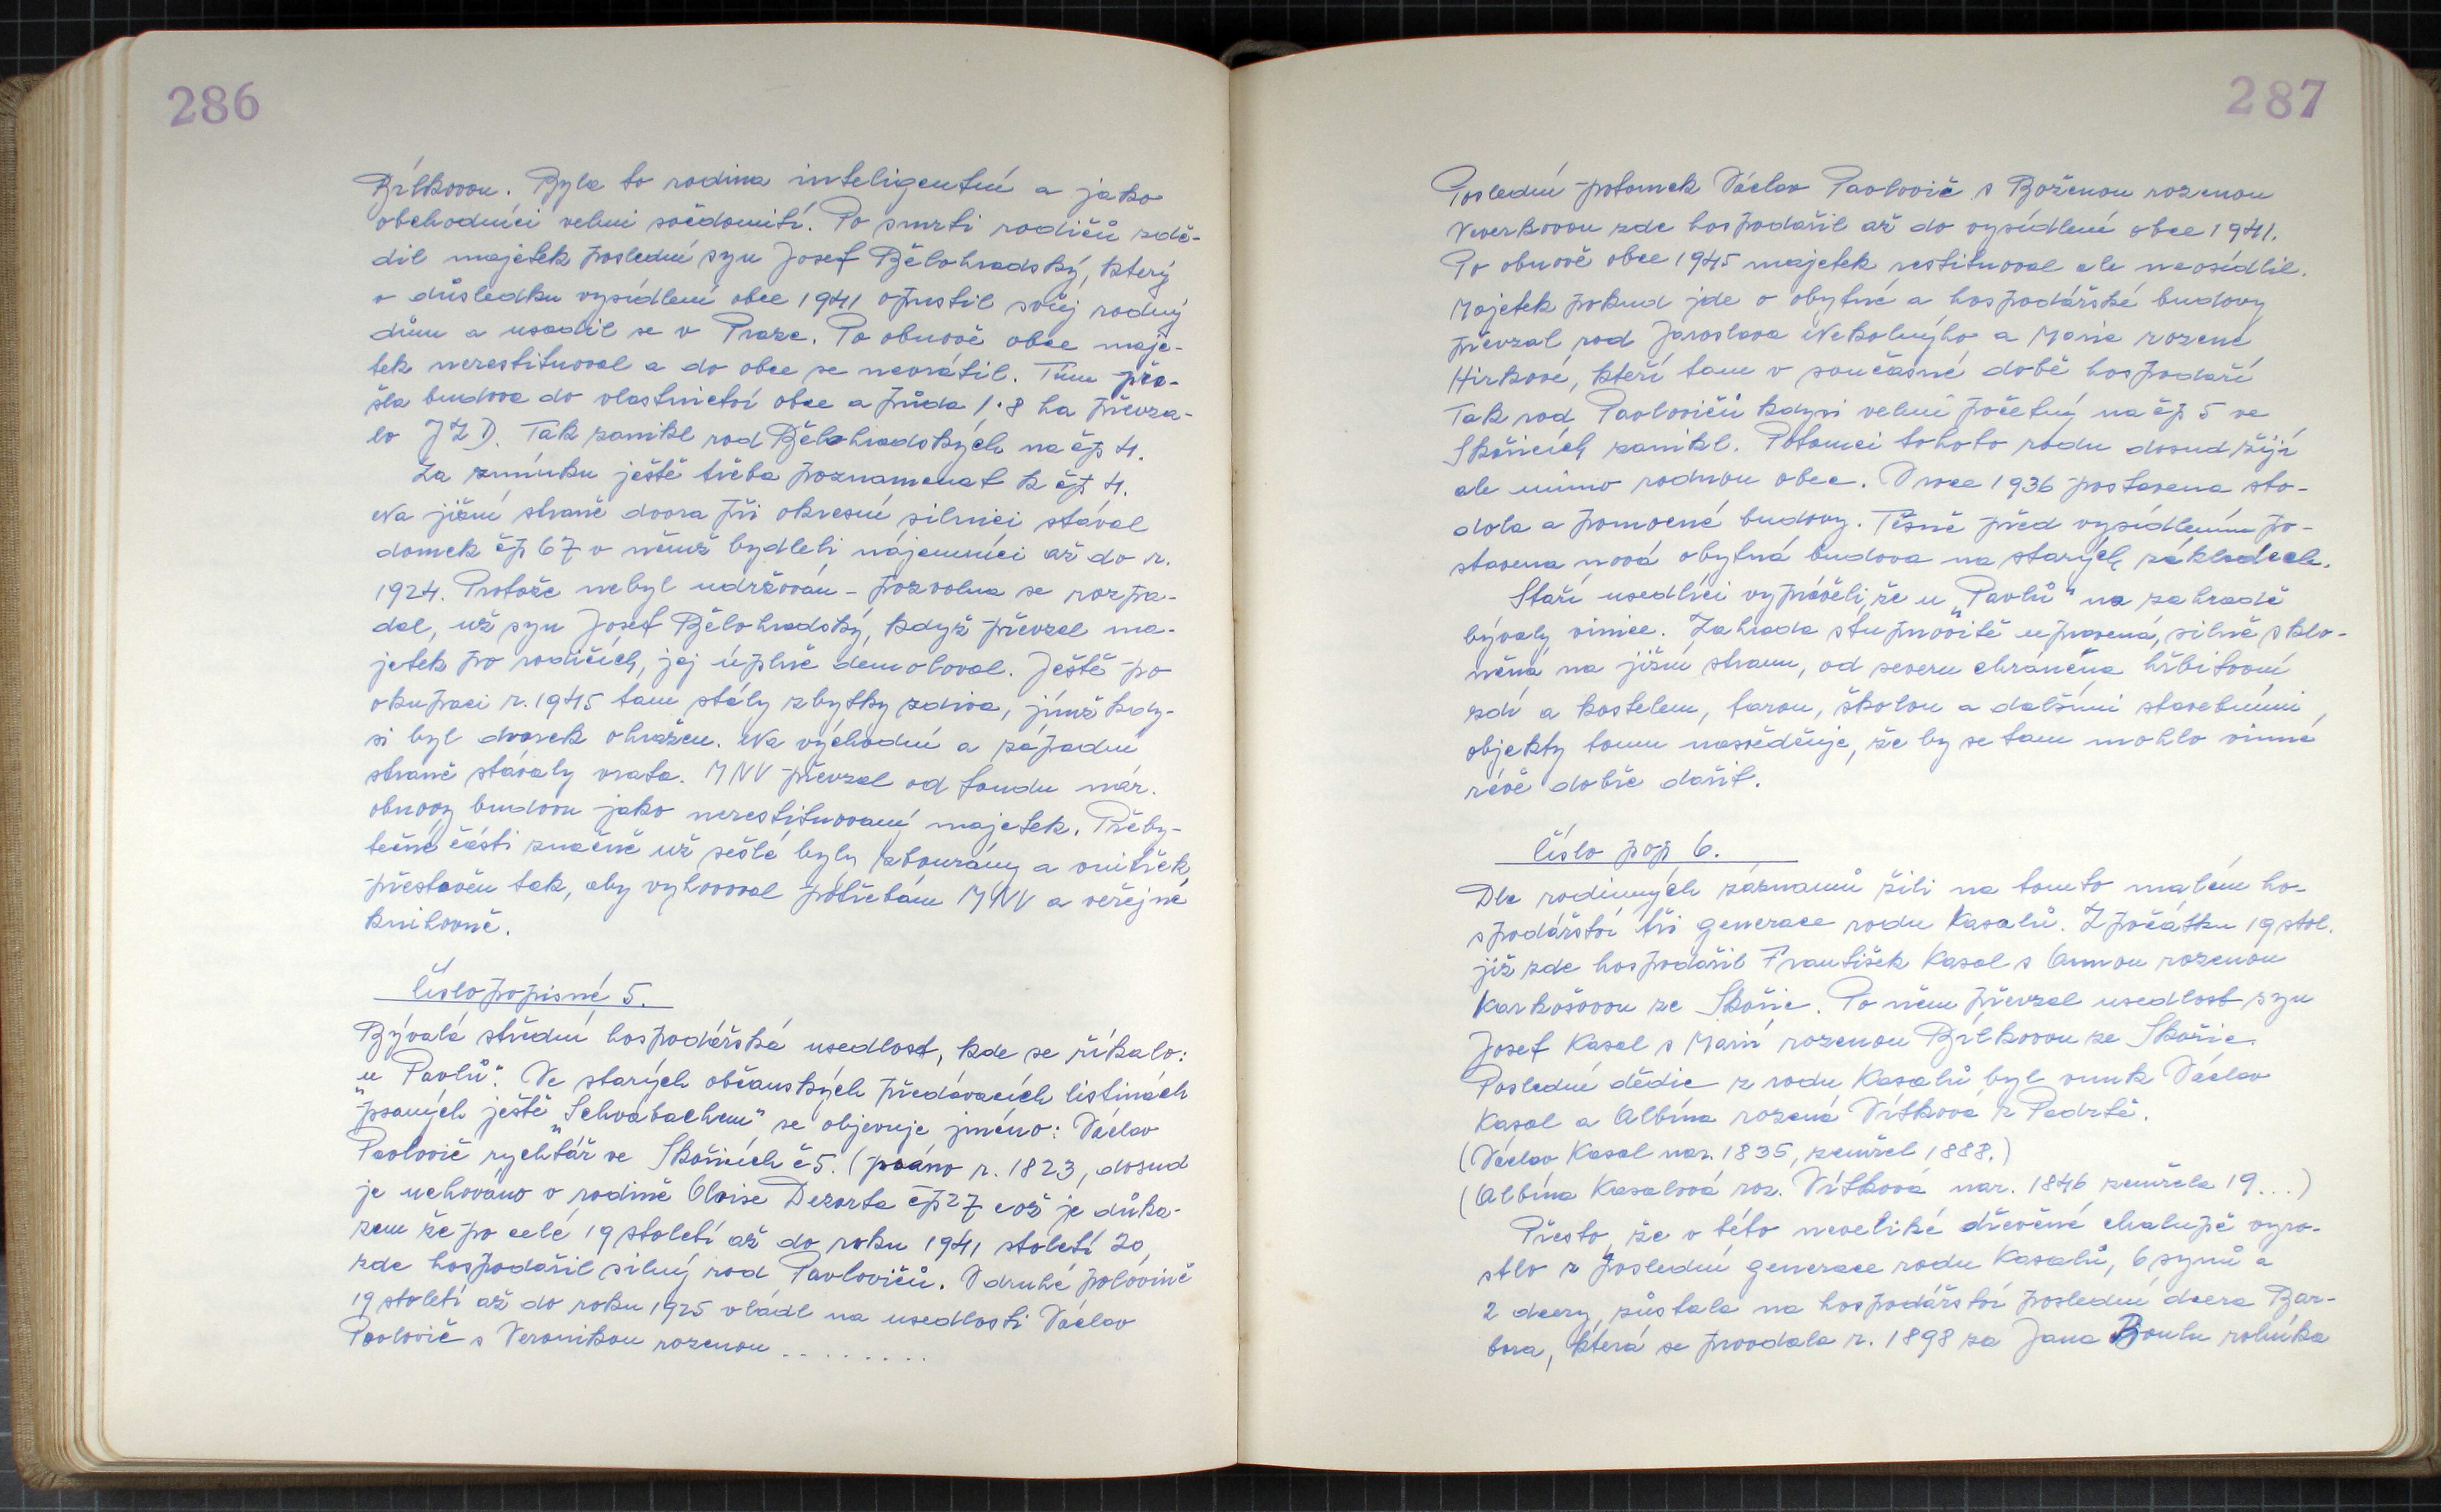 286
Bílkovou. Byla to rodina inteligentní a jako
obchodníci velmi svědomití. Po smrti rodičů zdě-
dil majetek poslední syn Josef Bělohradský, který
v důsledku vysídlení obce 1941 opustil svůj rodný
dům a usadil se v Praze. Po obnově obce maje-
tek nerestituoval a do obce se nevrátil. Tím pře-
šla budova do vlastnictví obce a půda 1·8 ha převza-
lo JZD. Tak zanikl rod Bělohradských na čp 4.
Za zmínku ještě třeba poznamenat k čp 4.
Na jižní straně dvora při okresní silnici stával
domek čp 67 v němž bydleli nájemníci až do r.
1924. Protože nebyl udržován - pozvolna se rozpa-
dal, už syn Josef Bělohradský, když převzal ma-
jetek po rodičích, jej úplně demoloval. Ještě po
okupaci r. 1945 tam stály zbytky zdiva, jímž kdy-
si byl dvorek ohražen. Na východní a západní
straně stávaly vrata. MNV převzal od fondu nár.
obnovy budovu jako nerestituovaný majetek. Přeby-
tečné části značně už sešlé byly zbourány a vnitřek
přestavěn tak, aby vyhovoval potřebám MNV a veřejné
knihovně.
Číslo popisné 5.
Bývalá střední hospodářská usedlost, kde se říkalo:
„u Pavlů“. Ve starých občanských předávacích listinách
psaných ještě „Schvabachem“ se objevuje jméno: Václav
Pavlovič rychtář ve Skořicích č 5. (psáno r. 1823, dosud
je uchováno v rodině Aloise Dezorta čp 27 což je důka-
zem že po celé 19 století až do roku 1941 století 20,
zde hospodařil silný rod Pavlovičů. V druhé polovině
19 století až do roku 1925 vládl na usedlosti Václav
Pavlovič s Veronikou rozenou ........
287
Poslední potomek Václav Pavlovič s Boženou rozenou
Veverkovou zde hospodařil až do vysídlení obce 1941.
Po obnově obce 1945 majetek restituoval ale neosídlil.
Majetek pokud jde o obytné a hospodářské budovy
převzal rod Jaroslava Nekolného a Marie rozené
Hirkové, kteří tam v současné době hospodaří
Tak rod Pavlovičů kdysi velmi početný na čp 5 ve
Skořicích zanikl. Potomci tohoto rodu dosud žijí
ale mimo rodnou obec. V roce 1936 postavena sto-
dola a pomocné budovy. Těsně před vysídlením po-
stavena nová obytná budova na starých základech.
Staří usedlíci vyprávěli, že u „Pavlů“ na zahradě
bývaly vinice. Zahrada stupňovitě upravená, silně sklo-
něná na jižní stranu, od severu chráněna hřbitovní
zdí a kostelem, farou, školou a dalšími stavebními
objekty tomu nasvědčuje, že by se tam mohlo vinné
révě dobře dařit.
Číslo pop 6.
Dle rodinných záznamů žili na tomto malém ho-
spodářství tři generace rodu Kasalů. Z počátku 19 stol.
již zde hospodařil František Kasal s Annou rozenou
Karkošovou ze Skořic. Po něm převzal usedlost syn
Josef Kasal s Marií rozenou Bílkovou ze Skořic
Poslední dědic z rodu Kasalů byl vnuk Václav
Kasal a Albína rozená Vítková z Padrtě.
(Václav Kasal nar. 1835, zemřel 1888.)
(Albína Kasalová roz. Vítková nar. 1846 zemřela 19...)
Přesto, že v této neveliké dřevěné chalupě vyro-
stlo z poslední generace rodu Kasalů, 6 synů a
2 dcery, zůstala na hospodářství poslední dcera Bar-
bora, která se provdala r. 1898 za Jana Boulu rolníka